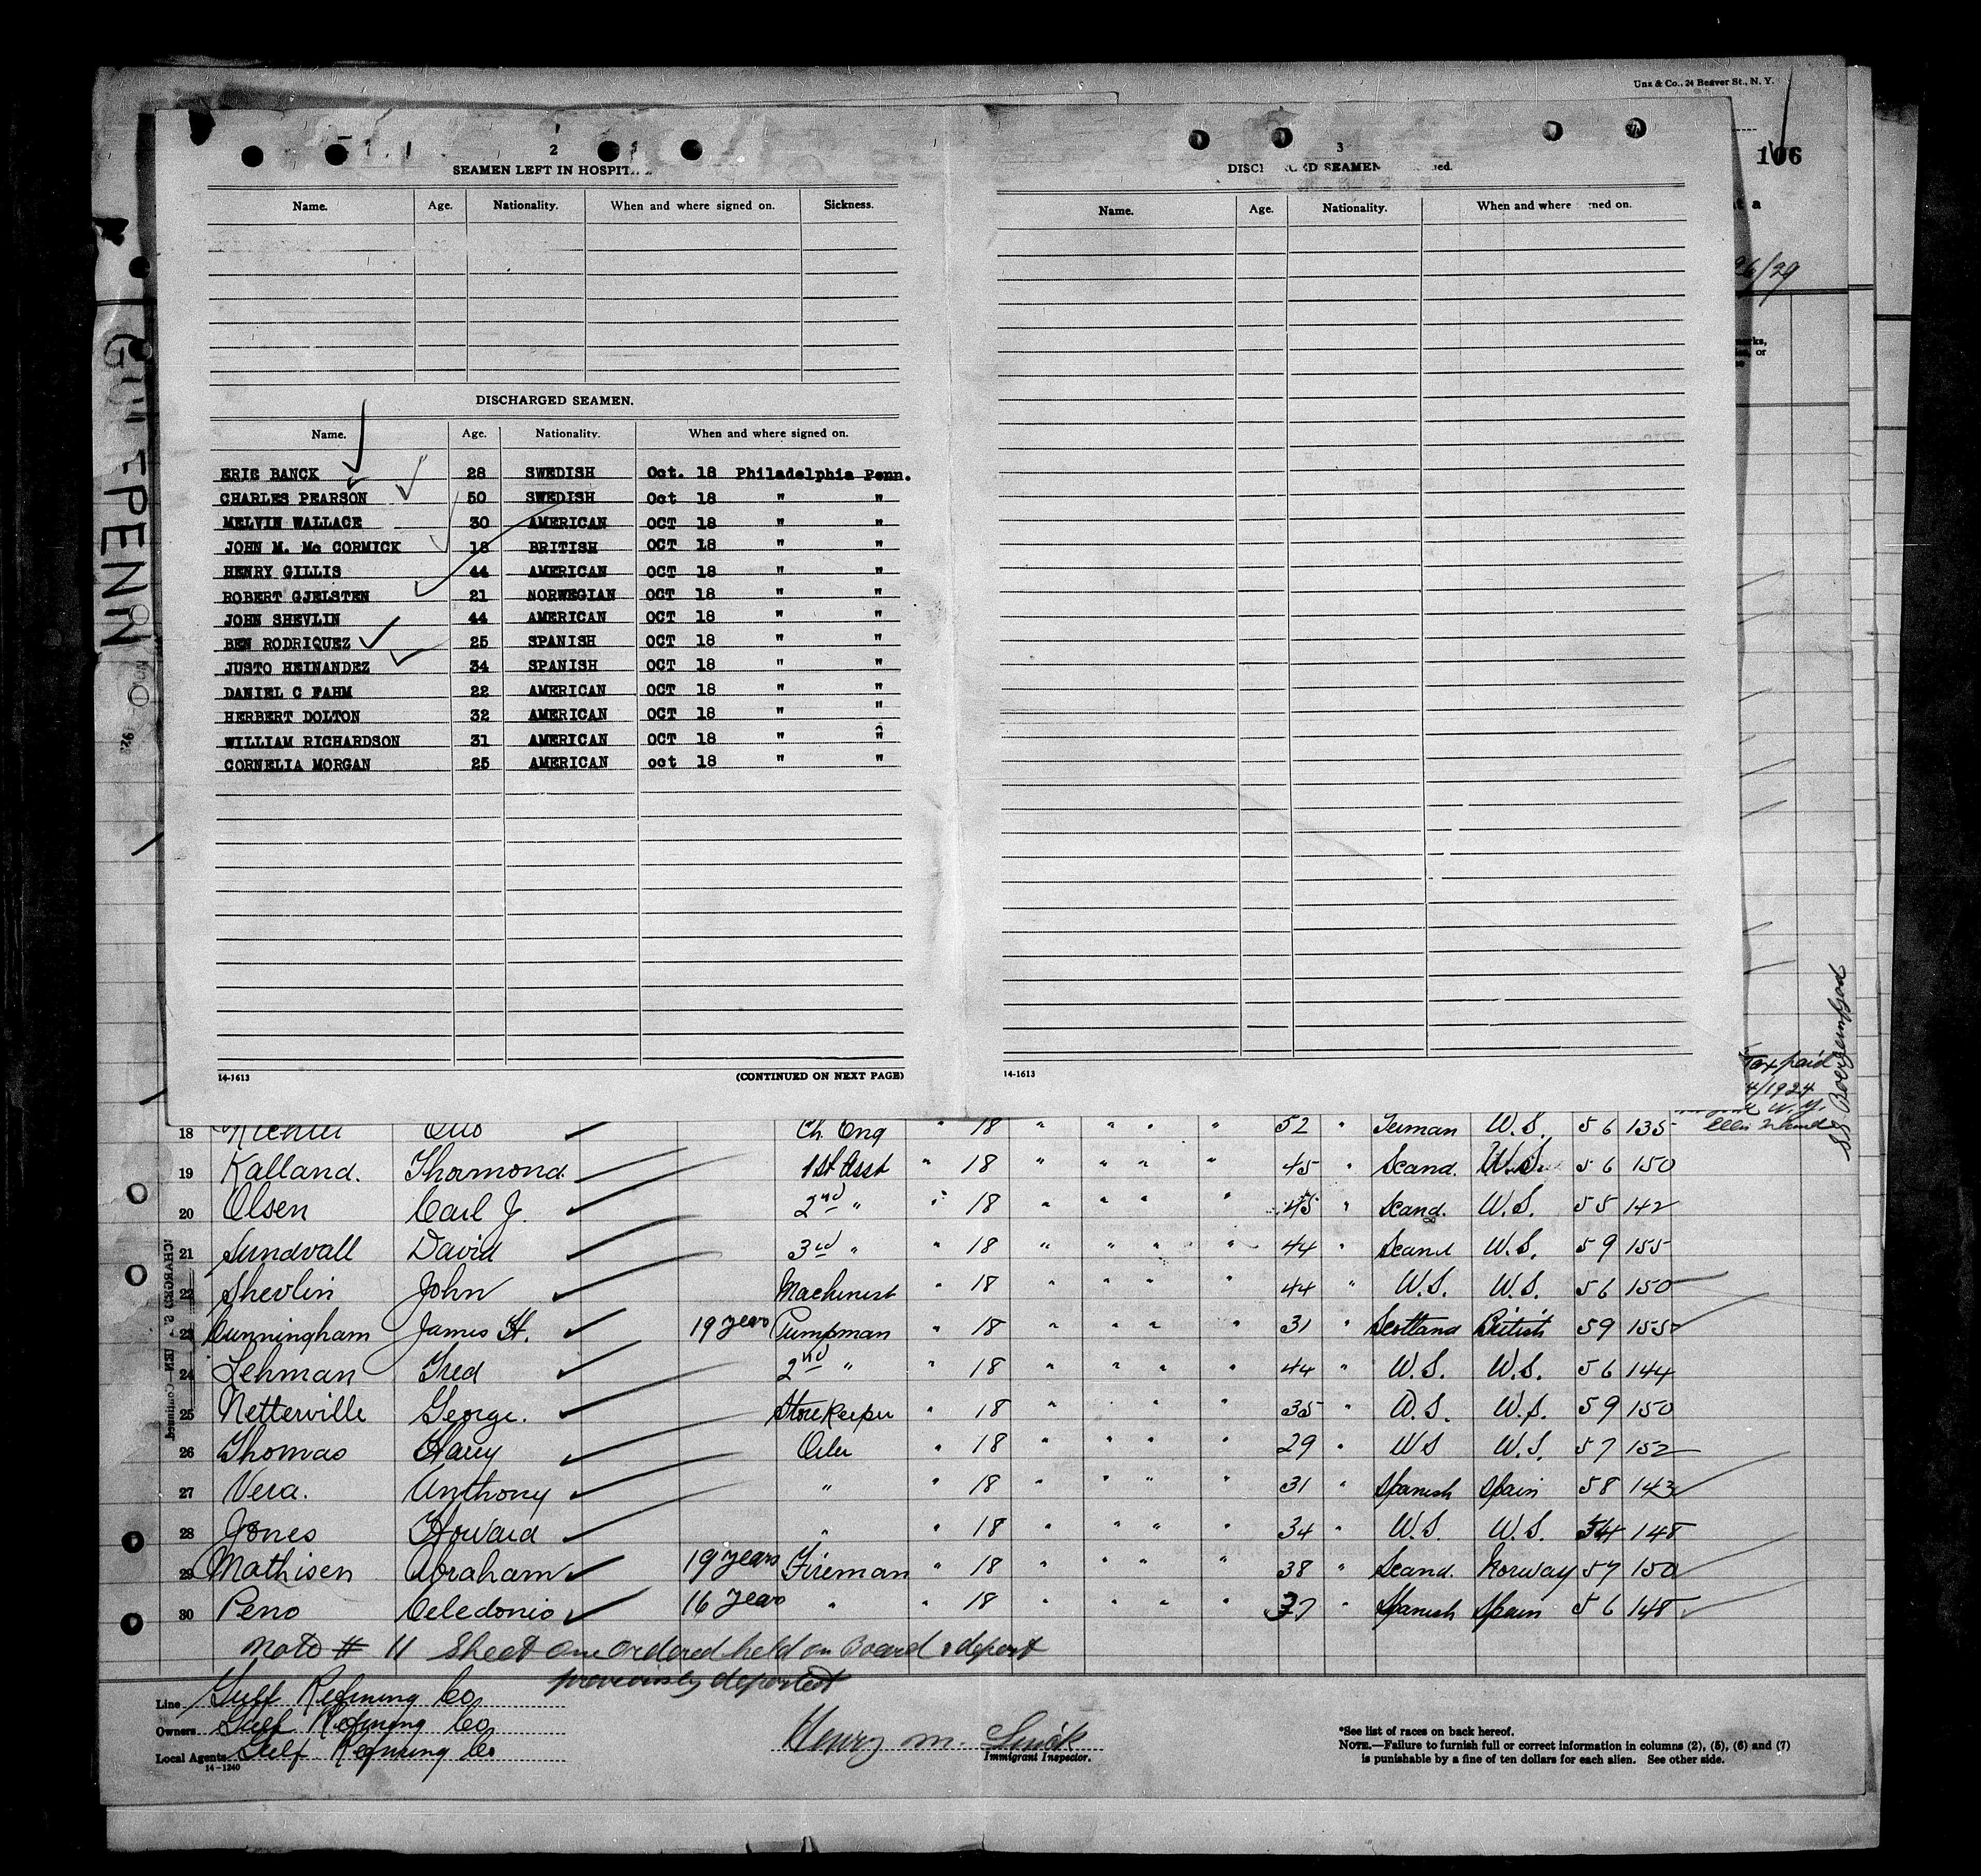 Unz & Co., 24 Beaver St., N. Y.
106
26/29
GULFPENN
2
SEAMEN LEFT IN HOSPIT
Name. Age. Nationality. When and where signed on. Sickness.
DISCHARGED SEAMEN.
Name. Age. Nationality. When and where signed on.
ERIC BANCK 28 SWEDISH Oct. 18 Philadelphia Penn.
CHARLES PEARSON 50 SWEDISH Oct 18 " "
MELVIN WALLACE 30 AMERICAN OCT 18 " "
JOHN M. Mc CORMICK 18 BRITISH OCT 18 " "
HENRY GILLIS 44 AMERICAN OCT 18 " "
ROBERT GJELSTEN 21 NORWEGIAN OCT 18 " "
JOHN SHEVLIN 44 AMERICAN OCT 18 " "
BEN RODRIQUEZ 25 SPANISH OCT 18 " "
JUSTO HEINANDEZ 34 SPANISH OCT 18 " "
DANIEL C FAHM 22 AMERICAN OCT 18 " "
HERBERT DOLTON 32 AMERICAN OCT 18 " "
WILLIAM RICHARDSON 31 AMERICAN OCT 18 " "
CORNELIA MORGAN 25 AMERICAN oct 18 " "
14-1613 (CONTINUED ON NEXT PAGE)
3
DISCH ED SEAMEN ued.
Name. Age. Nationality. When and where ned on.
14-1613
Tax paid
4/1924
N. Y.
Ellis Island
18 Otto Ch Eng " 18 " " " " 52 " German U.S. 5 6 135
19 Kalland. Thormond. 1st Asst " 18 " " " " 45 " Scand. U.S. 5 6 150
20 Olsen Carl J. 2nd " " 18 " " " " 45 " Scand. U.S. 5 5 142
21 Sundvall David 3rd " " 18 " " " " 44 " Scand U.S. 5 9 155
22 Shevlin John Machinist " 18 " " " " 44 " U.S. U.S. 5 6 150
23 Cunningham James H. 19 years Pumpman " 18 " " " " 31 " Scotland British 5 9 155
24 Lehman Fred 2nd " " 18 " " " " 44 " U.S. U.S. 5 6 144
25 Netterville George. Storekeeper " 18 " " " " 35 " U.S. U.S. 5 9 150
26 Thomas Harry Oiler " 18 " " " " 29 " U.S U.S. 5 7 152
27 Vera. Anthony " " 18 " " " " 31 " Spanish Spain 5 8 143
28 Jones Howard " " 18 " " " " 34 " U.S. U.S. 5 4 148
29 Mathisen Abraham 19 years Fireman " 18 " " " " 38 " Scand. Norway 5 7 150
30 Peno Celedonio 16 years " " 18 " " " " 37 " Spanish Spain 5 6 148
Note # 11 Sheet one ordered held on Board & deport
previously deported
Line Gulf Refining Co
Owners Gulf Refining Co
Local Agents Gulf Refining Co
14-1240
Henry M.
Immigrant Inspector.
*See list of races on back hereof.
NOTE.—Failure to furnish full or correct information in columns (2), (5), (6) and (7)
is punishable by a fine of ten dollars for each alien. See other side.